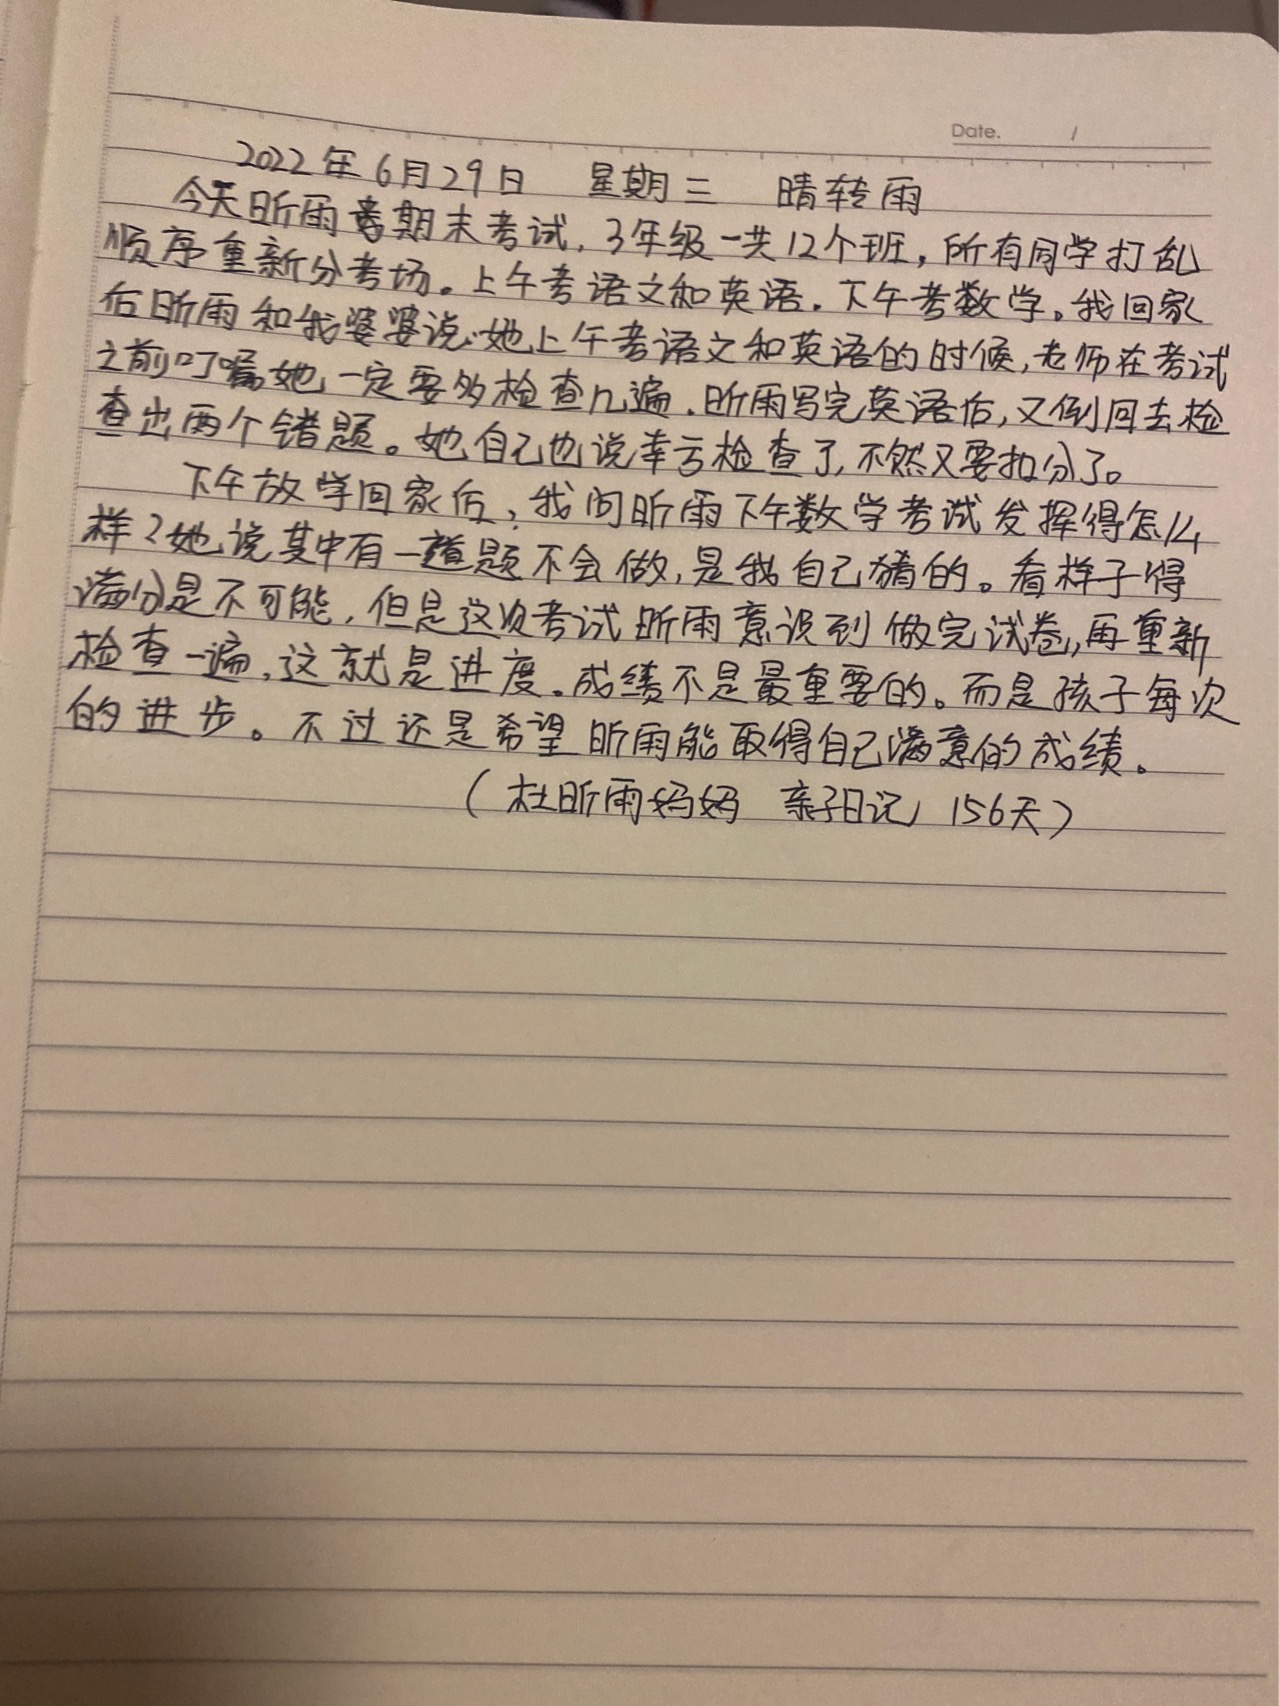 Date. /
2022年6月29日 星期三 晴转雨
今天昕雨考期末考试,3年级一共12个班,所有同学打乱
顺序重新分考场。上午考语文和英语.下午考数学。我回家
后昕雨和我婆婆说:她上午考语文和英语的时候,老师在考试
之前叮嘱她一定要多检查几遍.昕雨写完英语后,又倒回去检
查出两个错题。她自己也说幸亏检查了,不然又要扣分了。
下午放学回家后,我问昕雨下午数学考试发挥得怎么
样?她说其中有一道题不会做,是我自己猜的。看样子得
满分是不可能,但是这次考试昕雨意识到做完试卷,再重新
检查一遍,这就是进度。成绩不是最重要的。而是孩子每次
的进步。不过还是希望昕雨能取得自己满意的成绩。
(杜昕雨妈妈 亲子日记 156天)